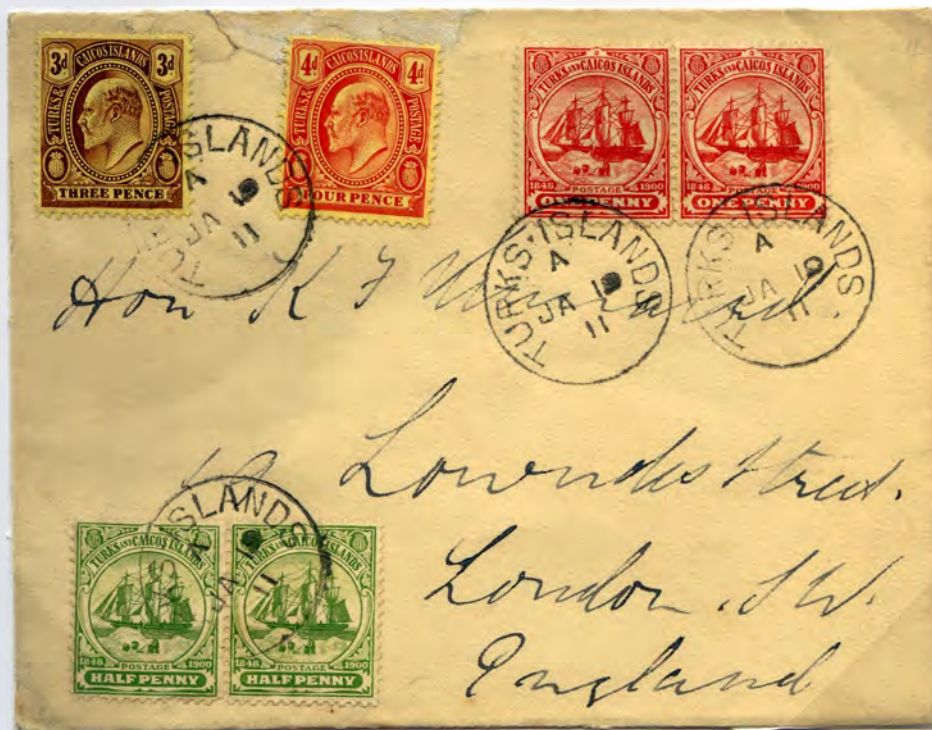 3d CAICOS ISLANDS 3d
TURKS & POSTAGE
THREE PENCE
4d CAICOS ISLANDS 4d
TURKS & POSTAGE
FOUR PENCE
TURKS AND CAICOS ISLANDS
1848 POSTAGE 1900
ONE PENNY
TURKS AND CAICOS ISLANDS
1848 POSTAGE 1900
ONE PENNY
TURKS ISLANDS
A
JA
11
TURKS ISLANDS
A
JA
11
TURKS ISLANDS
A
JA 19
11
Hon K F
Lowndes Street.
London. S W.
England
ISLANDS
JA
11
TURKS AND CAICOS ISLANDS
1848 POSTAGE 1900
HALFPENNY
TURKS AND CAICOS ISLANDS
1848 POSTAGE 1900
HALFPENNY